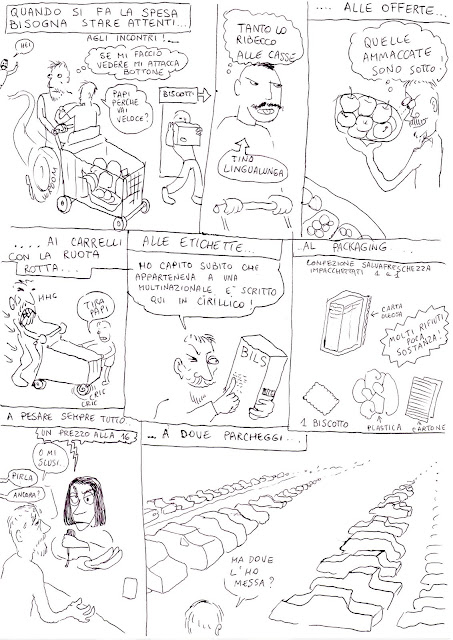 QUANDO SI FA LA SPESA
BISOGNA STARE ATTENTI...
AGLI INCONTRI!...
HEI
SE MI FACCIO
VEDERE MI ATTACCA
BOTTONE
PAPI
PERCHÈ
VAI
VELOCE?
BISCOTTI
VROOM
TANTO LO
RIBECCO
ALLE CASSE
TINO
LINGUALUNGA
.... ALLE OFFERTE...
QUELLE
AMMACCATE
SONO SOTTO!
.... AI CARRELLI
CON LA RUOTA
ROTTA....
HHG
TIRA
PAPI
CRIC
CRIC
ALLE ETICHETTE...
HO CAPITO SUBITO CHE
APPARTENEVA A UNA
MULTINAZIONALE E' SCRITTO
QUI IN CIRILLICO!
BILS
...AL PACKAGING...
CONFEZIONE SALVAFRESCHEZZA
IMPACCHETTATI 1 a 1
CARTA
OLEOSA
MOLTI RIFIUTI
POCA
SOSTANZA!
1 BISCOTTO
PLASTICA
CARTONE
A PESARE SEMPRE TUTTO..
UN PREZZO ALLA 16
O MI
SCUSI.
PIRLA
ANCORA?
... A DOVE PARCHEGGI...
MA DOVE
L'HO
MESSA?